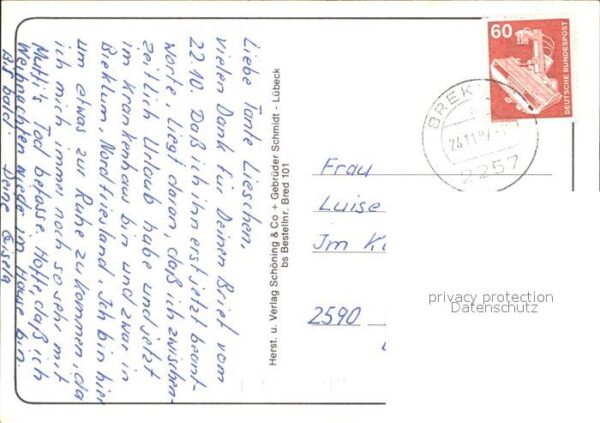 Liebe Tante Lieschen,
vielen Dank für Deinen Brief vom
22.10. Daß ich ihn erst jetzt beant-
worte, liegt daran, daß ich zwischen-
zeitlich Urlaub habe und jetzt
im Krankenhaus bin und zwar in
Breklum, Nordfriesland. Ich bin hier
um etwas zur Ruhe zu kommen, da
ich mich immer noch so sehr mit
Mutti's Tod befasse. Hoffe, daß ich
Weihnachten wieder im Hause bin.
Bis bald! Deine Gisela
Herst. u. Verlag Schöning & Co + Gebrüder Schmidt - Lübeck
bs Bestellnr. Bred 101
60
DEUTSCHE BUNDESPOST
BREK
24.11.8
2257
Frau
Luise
Im K
2590
privacy protection
Datenschutz